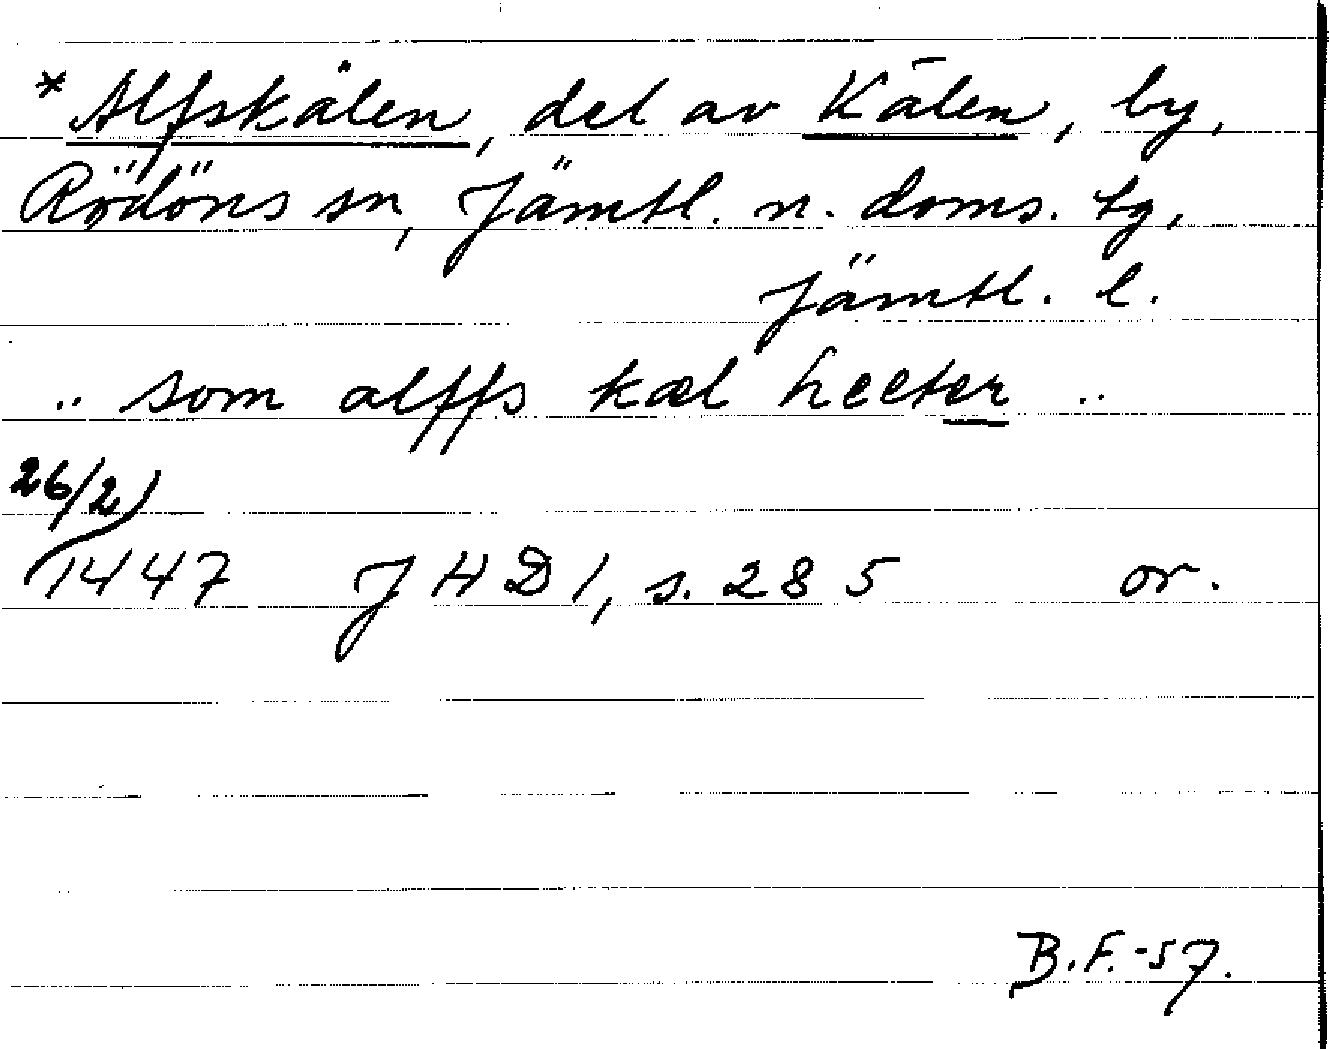 *Alfskälen, del av Kälen, by,
Rödöns sn, Jämtl. n. doms. tg,
Jämtl. l.
.. som alffs kæl heeter ..
26/2
1447 JHD 1, s. 285 or.
B.F.-57.